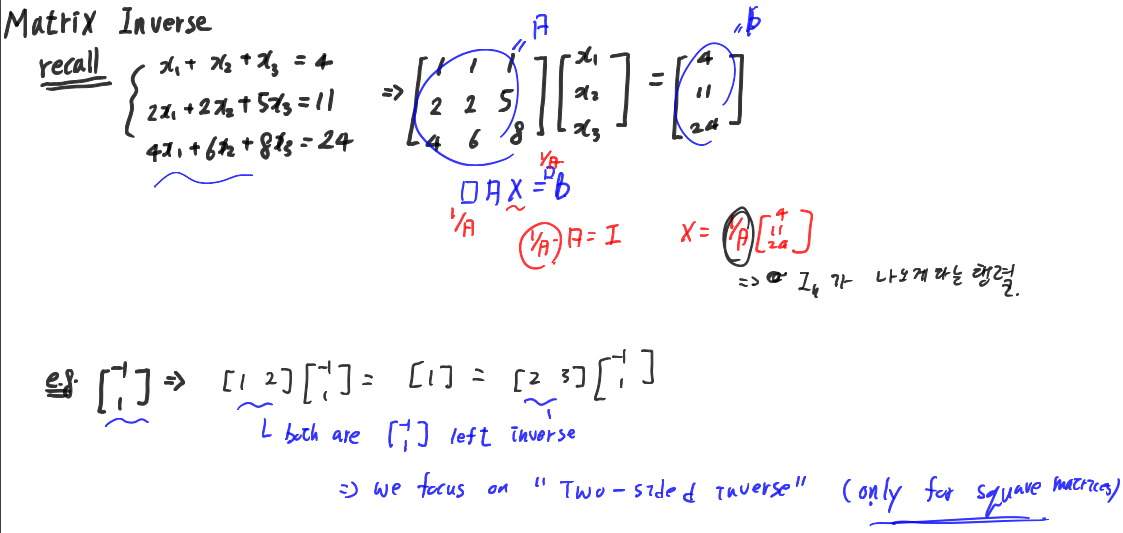 Matrix Inverse
recall
x₁ + x₂ + x₃ = 4
2x₁ + 2x₂ + 5x₃ = 11
4x₁ + 6x₂ + 8x₃ = 24
=> [1 1 1; 2 2 5; 4 6 8] [x₁; x₂; x₃] = [4; 11; 24]
" A
" b
1/A
□ A X = □ b
1/A
1/A · A = I
X = 1/A [4; 11; 24]
=> Iₙ 가 나오게 하는 행렬.
e.g. [-1; 1] => [1 2] [-1; 1] = [1] = [2 3] [-1; 1]
both are [-1; 1] left inverse
=> we focus on "Two-sided inverse" (only for square matrices)